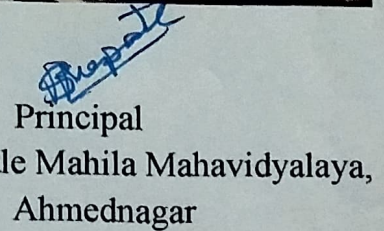 Principal
le Mahila Mahavidyalaya,
Ahmednagar